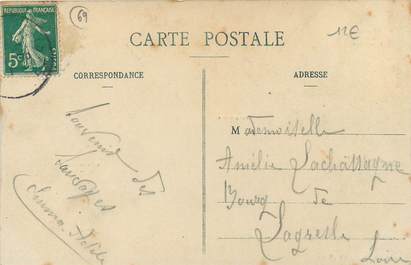 RÉPUBLIQUE FRANÇAISE
5c
69
12€
CARTE POSTALE
CORRESPONDANCE
ADRESSE
Souvenir des
Sauvages
Mademoiselle
Amélie Lachassagne
Bourg de
Lagresle
Loire